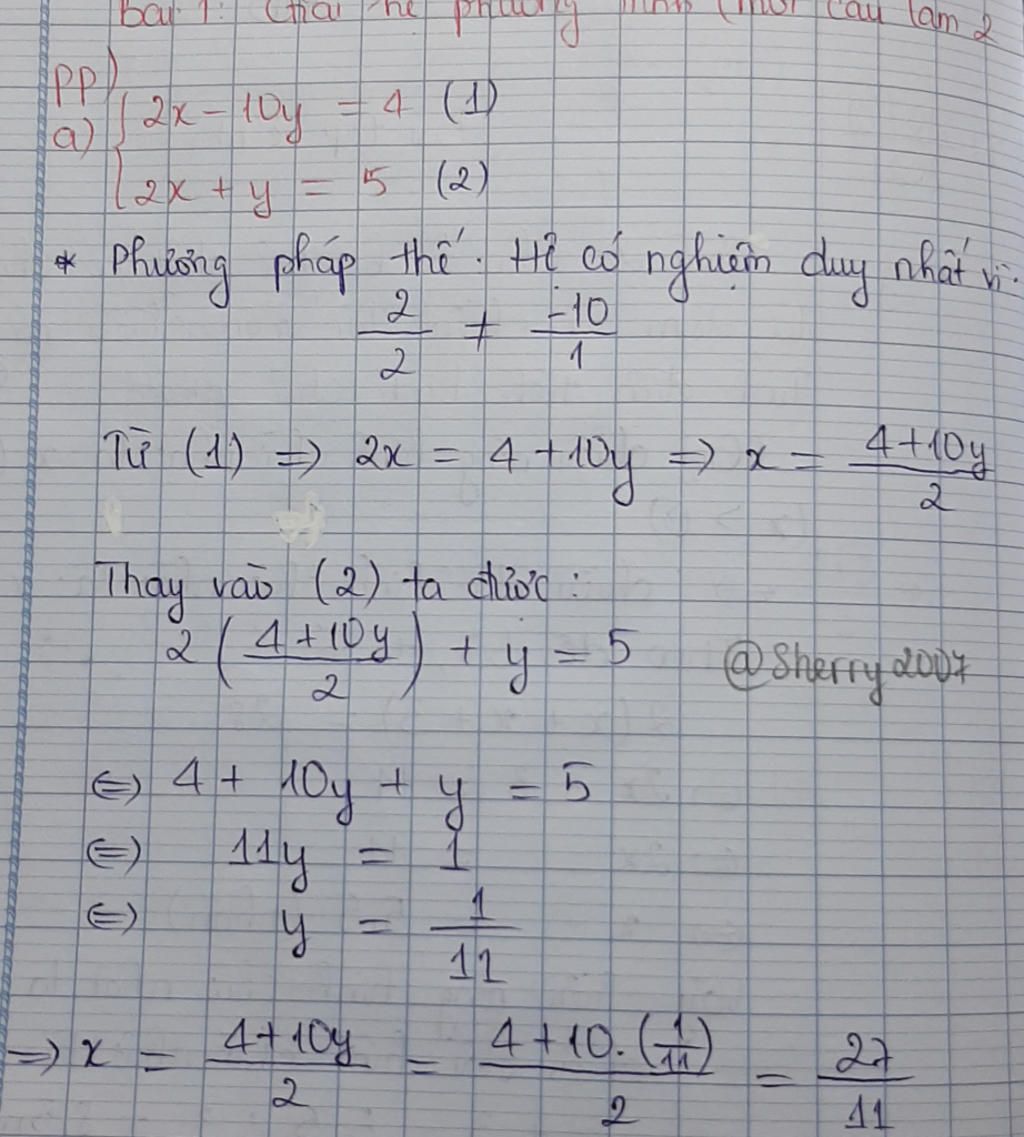 Bài 1: Giải hệ phương trình (mỗi câu làm 2
PP)
a) { 2x - 10y = 4 (1)
2x + y = 5 (2)
* Phương pháp thế. Hệ có nghiệm duy nhất vì.
2/2 ≠ -10/1
Từ (1) => 2x = 4 + 10y => x = (4+10y)/2
Thay vào (2) ta được:
2((4+10y)/2) + y = 5
@Sherry2007
<=> 4 + 10y + y = 5
<=> 11y = 1
<=> y = 1/11
=> x = (4+10y)/2 = (4+10.(1/11))/2 = 27/11